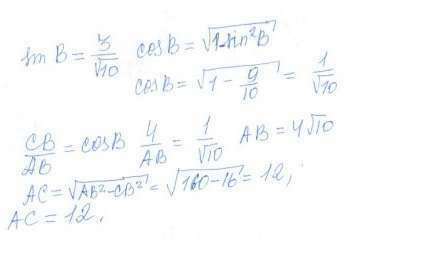 sin B = 3/√10 cosB = √(1-sin²B)
cosB = √(1 - 9/10) = 1/√10
CB/AB = cosB 4/AB = 1/√10 AB = 4√10
AC = √(AB²-CB²) = √(160-16) = 12,
AC = 12.